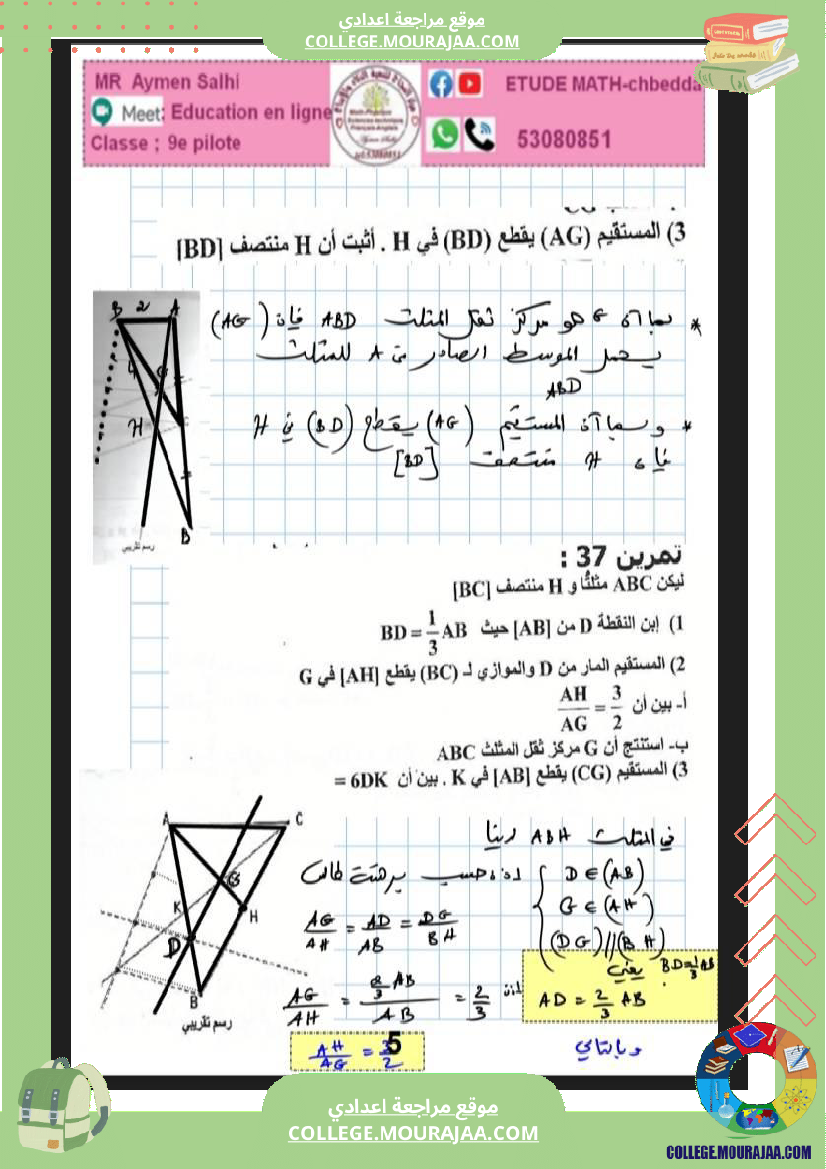 موقع مراجعة اعدادي
COLLEGE.MOURAJAA.COM
MR Aymen Salhi
Meet: Education en ligne
Classe ; 9e pilote
ETUDE MATH-chbedda
53080851
3) المستقيم (AG) يقطع (BD) في H . أثبت أن H منتصف [BD]
* بما أن G هو مركز ثقل المثلث ABD فإن (AG)
يحمل الموسط الصادر من A للمثلث
ABD
* وبما أن المستقيم (AG) يقطع (BD) في H
فإن H منتصف [BD]
B 2 A
4 G
H
B
رسم تقريبي
تمرين 37 :
ليكن ABC مثلثا و H منتصف [BC]
1) إبن النقطة D من [AB] حيث BD = 1/3 AB
2) المستقيم المار من D والموازي لـ (BC) يقطع [AH] في G
أ- بين أن AH/AG = 3/2
ب- استنتج أن G مركز ثقل المثلث ABC
3) المستقيم (CG) يقطع [AB] في K . بين أن = 6DK
A C
G
K H
D
B
رسم تقريبي
في المثلث ABH لدينا
D ∈ (AB)
G ∈ (AH)
(DG) // (BH)
اذا حسب مبرهنة طالس
AG/AH = AD/AB = DG/BH
BD = 1/3 AB يعني
AD = 2/3 AB
اذن AG/AH = 2/3 AB / AB = 2/3
وبالتالي
AH/AG = 3/2
5
موقع مراجعة اعدادي
COLLEGE.MOURAJAA.COM
COLLEGE.MOURAJAA.COM